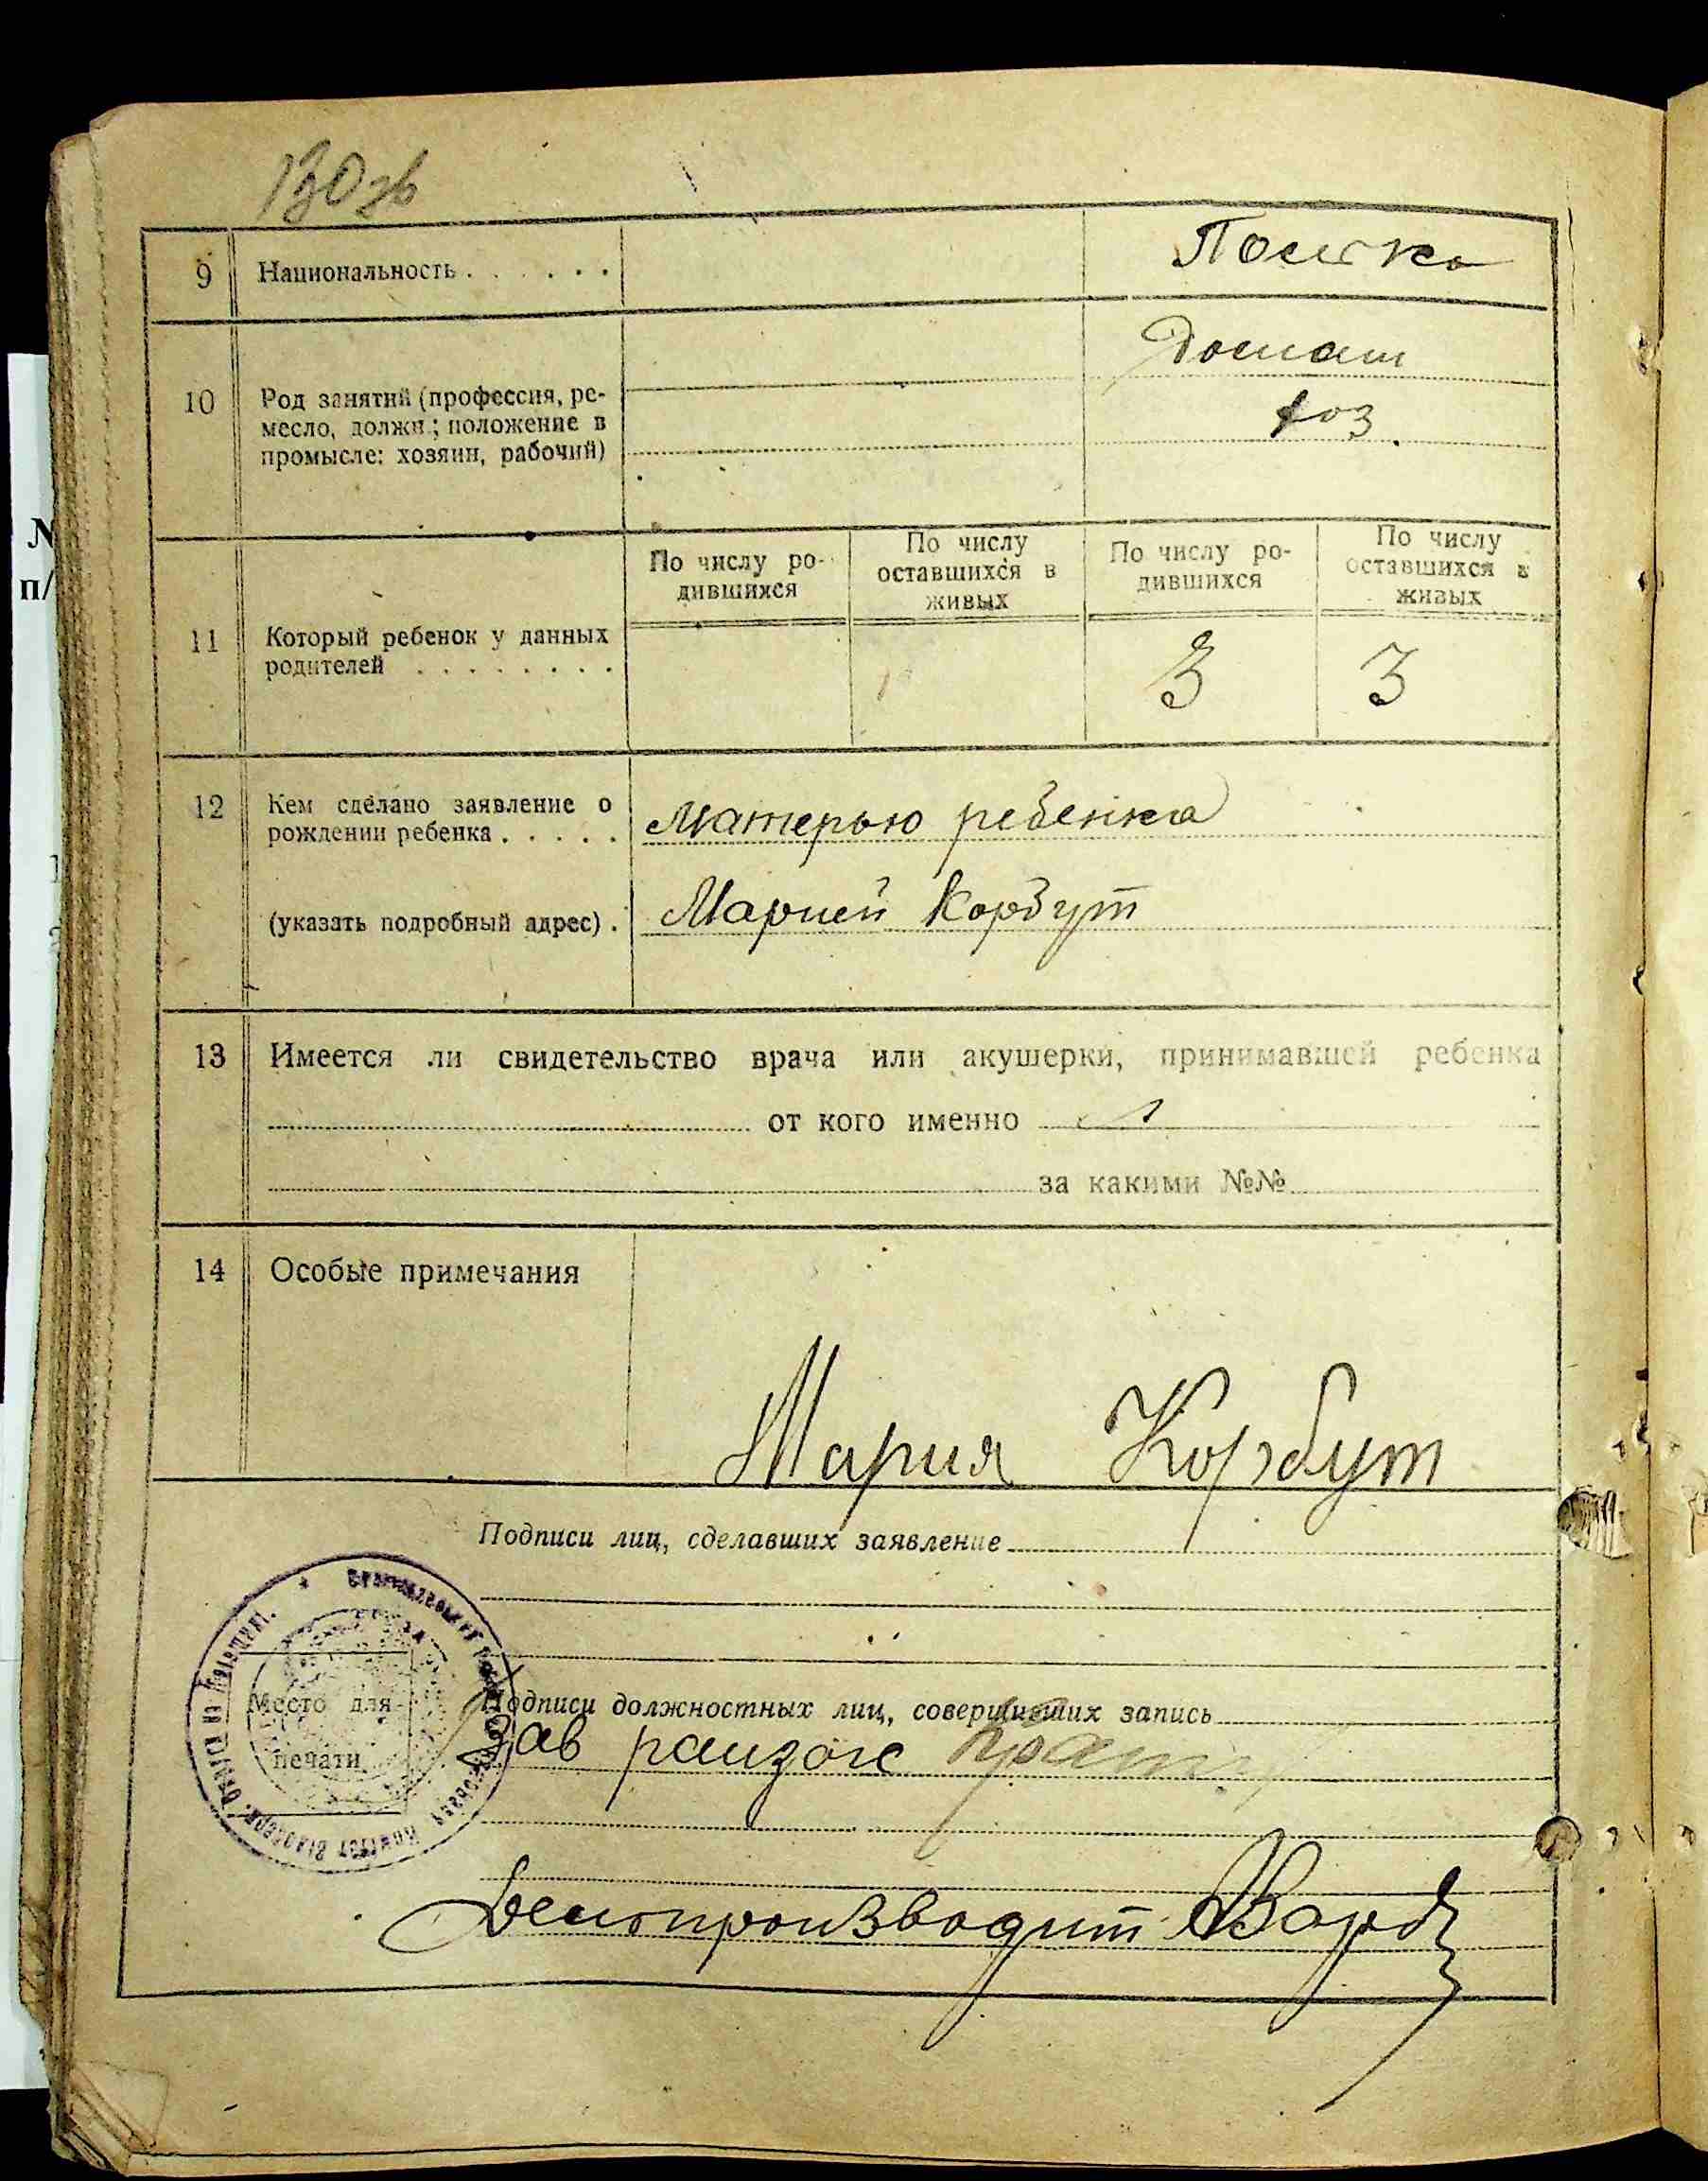 130 об
9 Национальность . . . . . . Полька
10 Род занятий (профессия, ре-
месло, должн.; положение в
промысле: хозяин, рабочий)
Домаш
хоз.
11 Который ребенок у данных
родителей . . . . . . . .
По числу ро-
дившихся
По числу
оставшихся в
живых
По числу ро-
дившихся
По числу
оставшихся в
живых
3 3
12 Кем сделано заявление о
рождении ребенка . . . . . матерью ребенка
(указать подробный адрес) . Марией Корбут
13 Имеется ли свидетельство врача или акушерки, принимавшей ребенка
от кого именно
за какими №№
14 Особые примечания
Мария Корбут
Подписи лиц, сделавших заявление
Подписи должностных лиц, совершивших запись
Место для
печати
Зав
Делопроизводит
N
п/